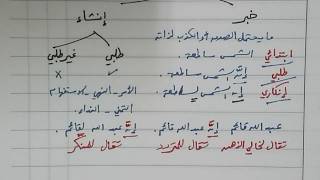 خبر إنشاء
ما يحتمل الصدق أو الكذب لذاته
طلبي غير طلبي
ابتدائي الشمس ساطعة.
طلبي إنَّ الشمس ساطعة.
إنكاري إنَّ الشمس لساطعة.
الأمر - النهي - الاستفهام
التمني - النداء.
عبد الله قائم إنَّ عبد الله قائم. إنَّ عبد الله لقائم.
تقال لخالي الذهن تقال للمتردد تقال للمنكر